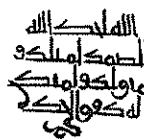 الله احد الله
الصمد لم يلد و
لم يولد و لم يكن
له كفوا احد